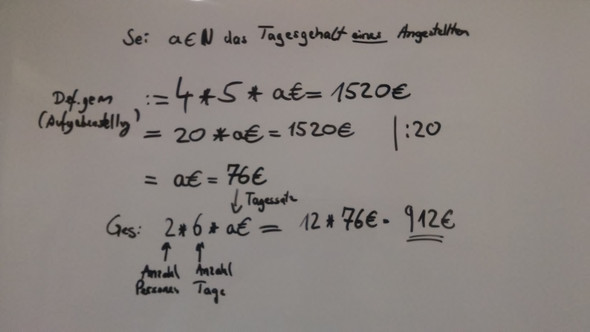 Sei a∈N das Tagesgehalt eines Angestellten
Def. gem := 4 * 5 * a€ = 1520€
(Aufgabenstellg)
= 20 * a€ = 1520€ |:20
= a€ = 76€
↓ Tagessatz
Ges: 2 * 6 * a€ = 12 * 76€ = 912€
↑ ↑
Anzahl Anzahl
Personen Tage